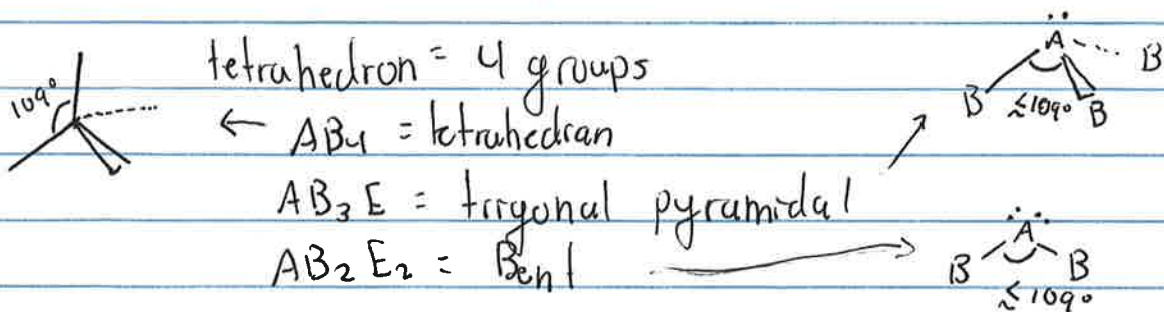 tetrahedron = 4 groups
109°
← AB4 = tetrahedran
AB3E = trigonal pyramidal
AB2E2 = Bent
A B
B ≤109° B
A
B B
≤109°